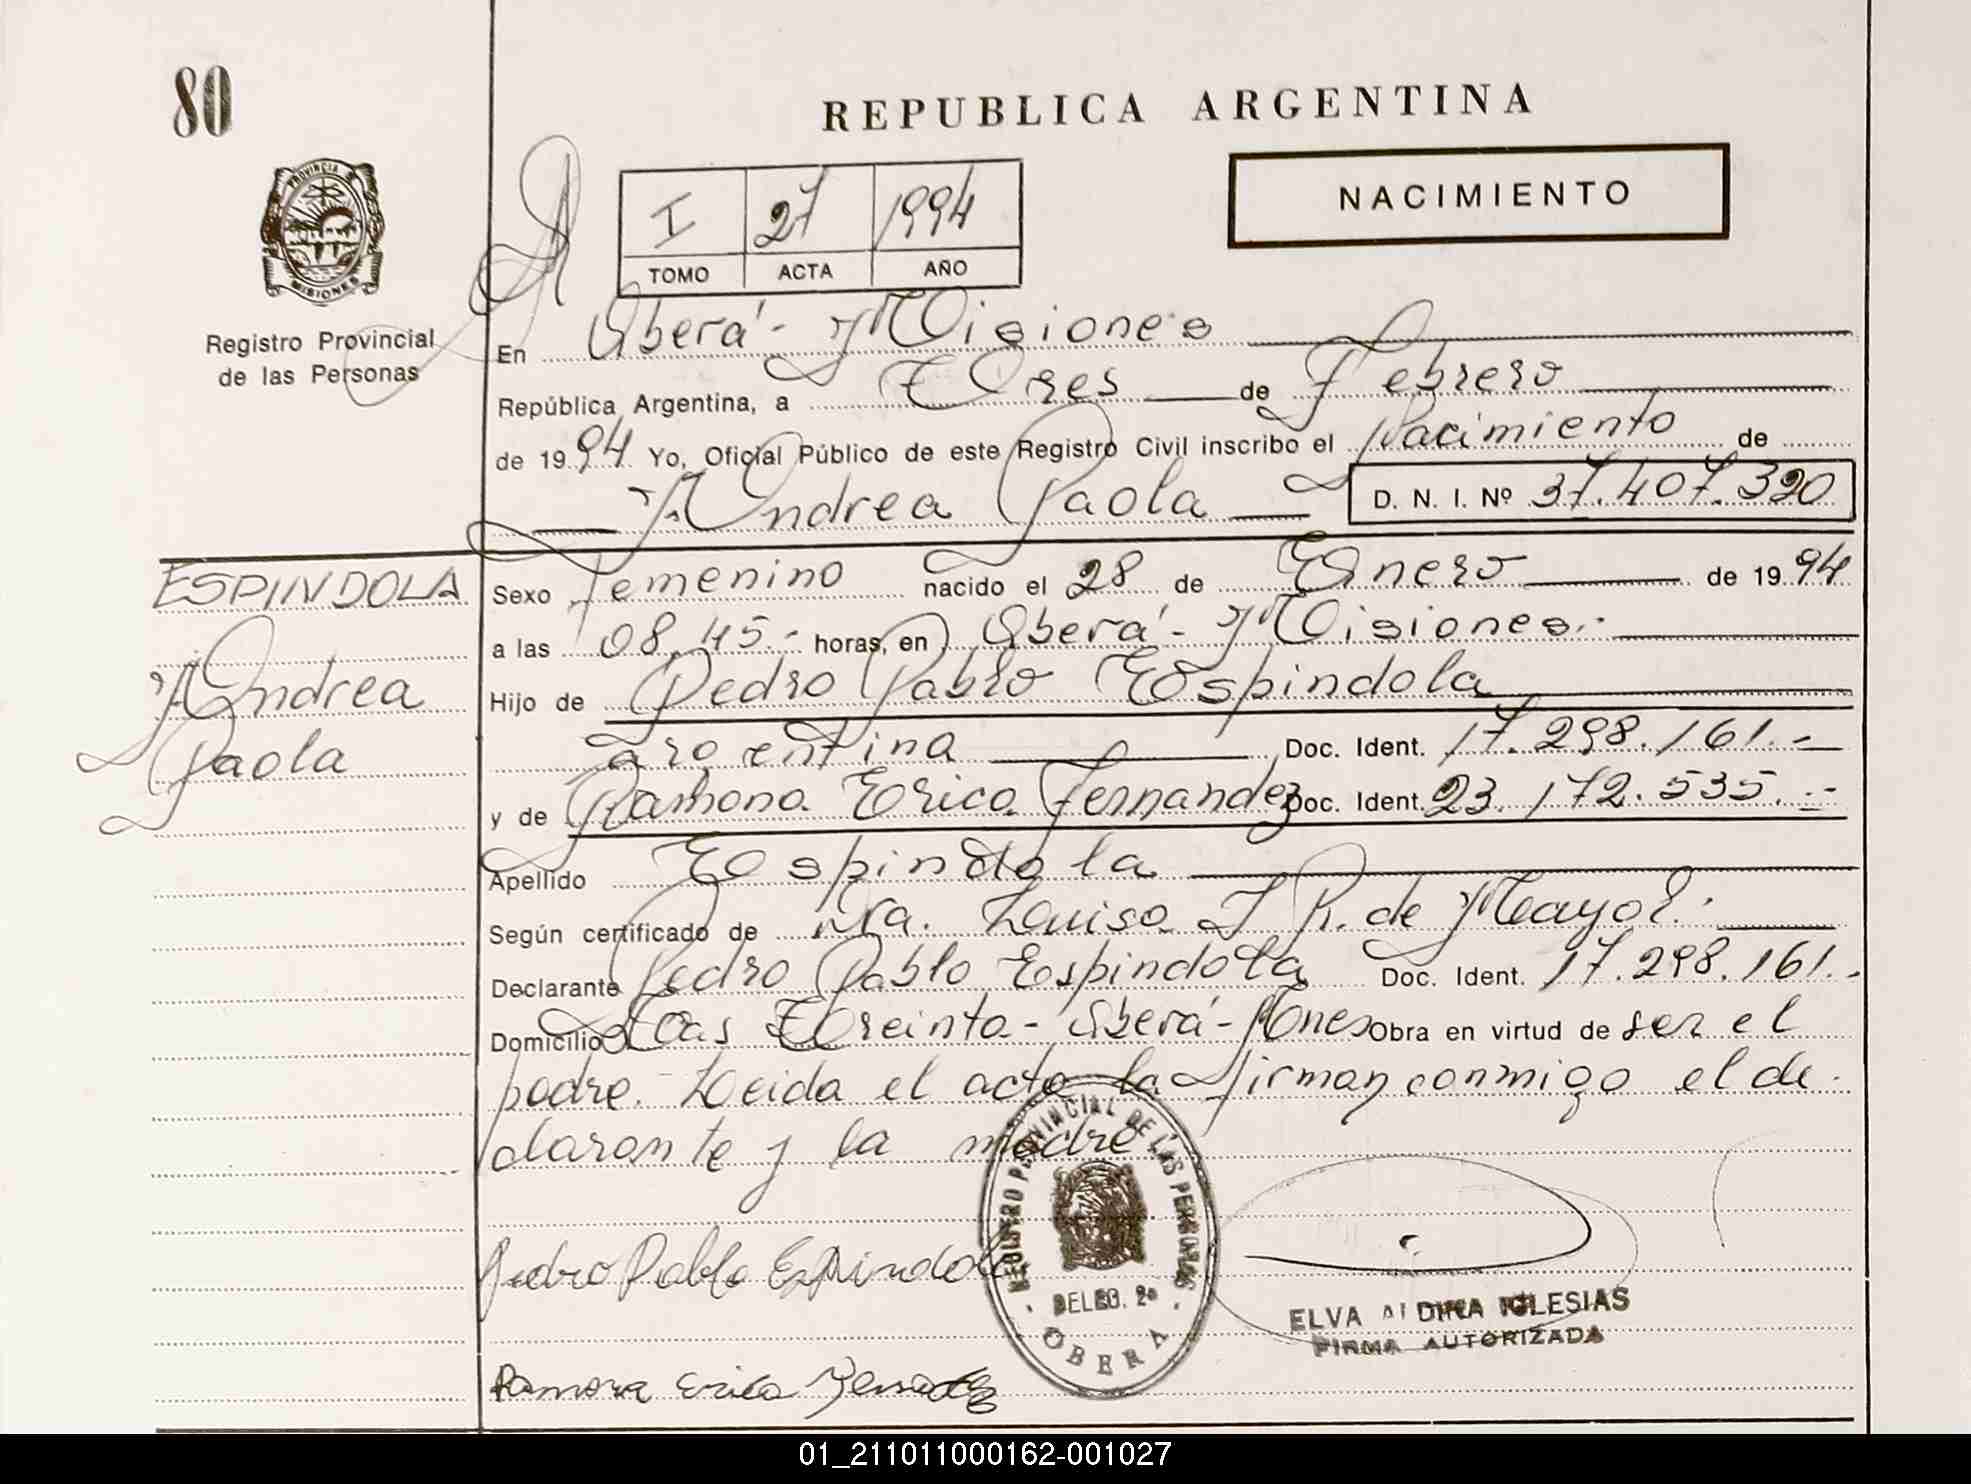 80
REPUBLICA ARGENTINA
PROVINCIA DE
MISIONES
Registro Provincial
de las Personas
I 27 1994
TOMO ACTA AÑO
NACIMIENTO
En Oberá - Misiones
República Argentina, a Tres de Febrero
de 1994 Yo, Oficial Público de este Registro Civil inscribo el Nacimiento de
Andrea Paola D. N. I. Nº 37.407.320
ESPINDOLA
Andrea
Paola
Sexo femenino nacido el 28 de Enero de 1994
a las 08,45.- horas, en Oberá - Misiones.-
Hijo de Pedro Pablo Espindola
argentina Doc. Ident. 17.298.161.-
y de Ramona Erica Fernandez Doc. Ident. 23.172.535.-
Apellido Espindola
Según certificado de Dra. Luisa J R. de Mayol.
Declarante Pedro Pablo Espindola Doc. Ident. 17.298.161.-
Domicilio Treinta - Oberá - Mnes Obra en virtud de ser el
padre. Leida el acta la firman conmigo el de
clarante y la madre
REGISTRO PROVINCIAL DE LAS PERSONAS
DELEG. 2a
OBERA
Pedro Pablo Espindola
ELVA IGLESIAS
FIRMA AUTORIZADA
Ramona Erica Fernandez
01_211011000162-001027